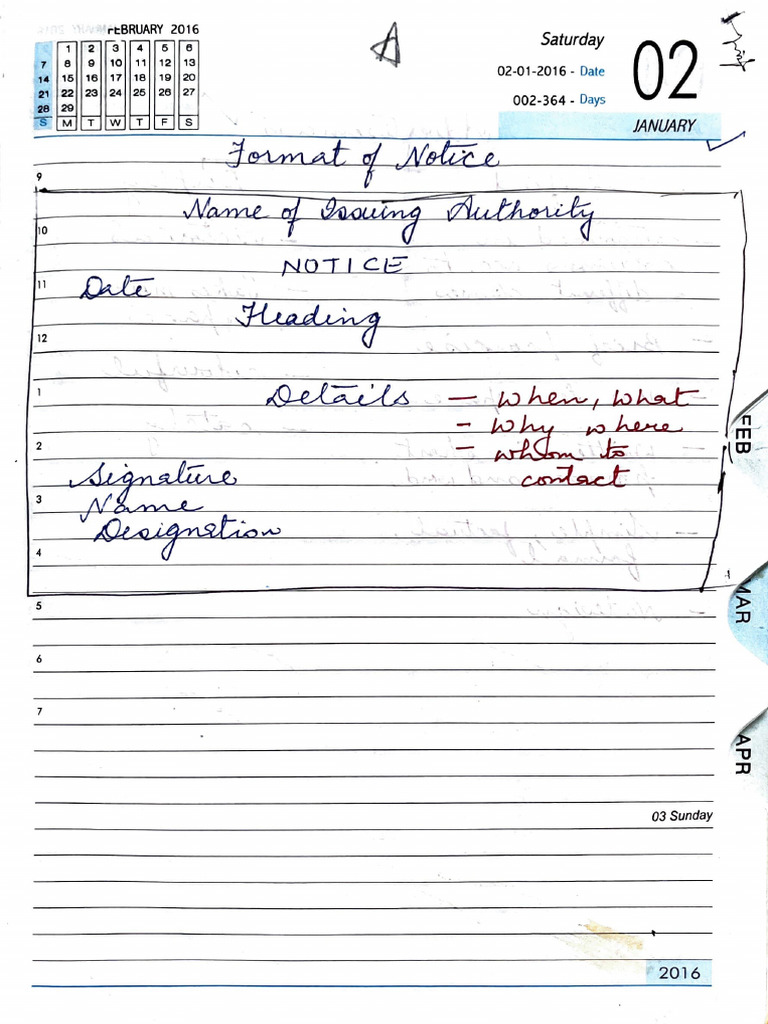 FEBRUARY 2016
1 2 3 4 5 6
7 8 9 10 11 12 13
14 15 16 17 18 19 20
21 22 23 24 25 26 27
28 29
S M T W T F S
A
Saturday
02-01-2016 - Date
002-364 - Days
02
JANUARY
Format of Notice
9
Name of Issuing Authority
10
NOTICE
11
Date
Heading
12
1
Details - when, what
- why where
2
- whom to
contact
Signature
3
Name
Designation
4
5
6
7
FEB
MAR
APR
03 Sunday
2016